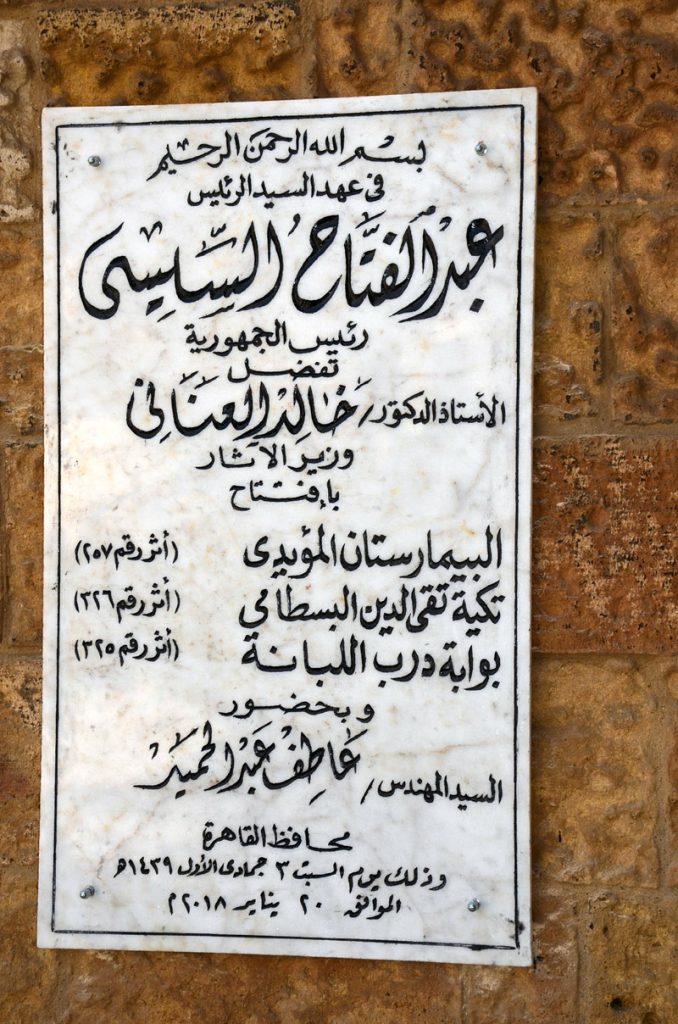 بسم الله الرحمن الرحيم
فى عهد السيد الرئيس
عبد الفتاح السيسى
رئيس الجمهورية
تفضل
الأستاذ الدكتور/ خالد العنانى
وزير الآثار
بإفتتاح
البيمارستان المؤيدى (أثر رقم ٢٥٧)
تكية تقى الدين البسطامي (أثر رقم ٣٢٦)
بوابة درب اللبانة (أثر رقم ٣٢٥)
وبحضور
السيد المهندس/ عاطف عبد الحميد
محافظ القاهرة
وذلك يوم السبت ٣ جمادى الأول ١٤٣٩هـ
الموافق ٢٠ يناير ٢٠١٨م